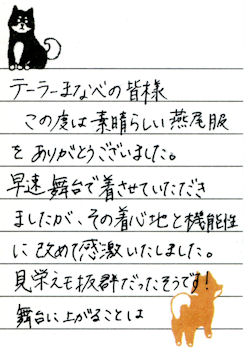 テーラーまなべの皆様
この度は素晴らしい燕尾服
をありがとうございました。
早速舞台で着させていただき
ましたが、その着心地と機能性
に改めて感激いたしました。
見栄えも抜群だったそうです!
舞台に上がることは